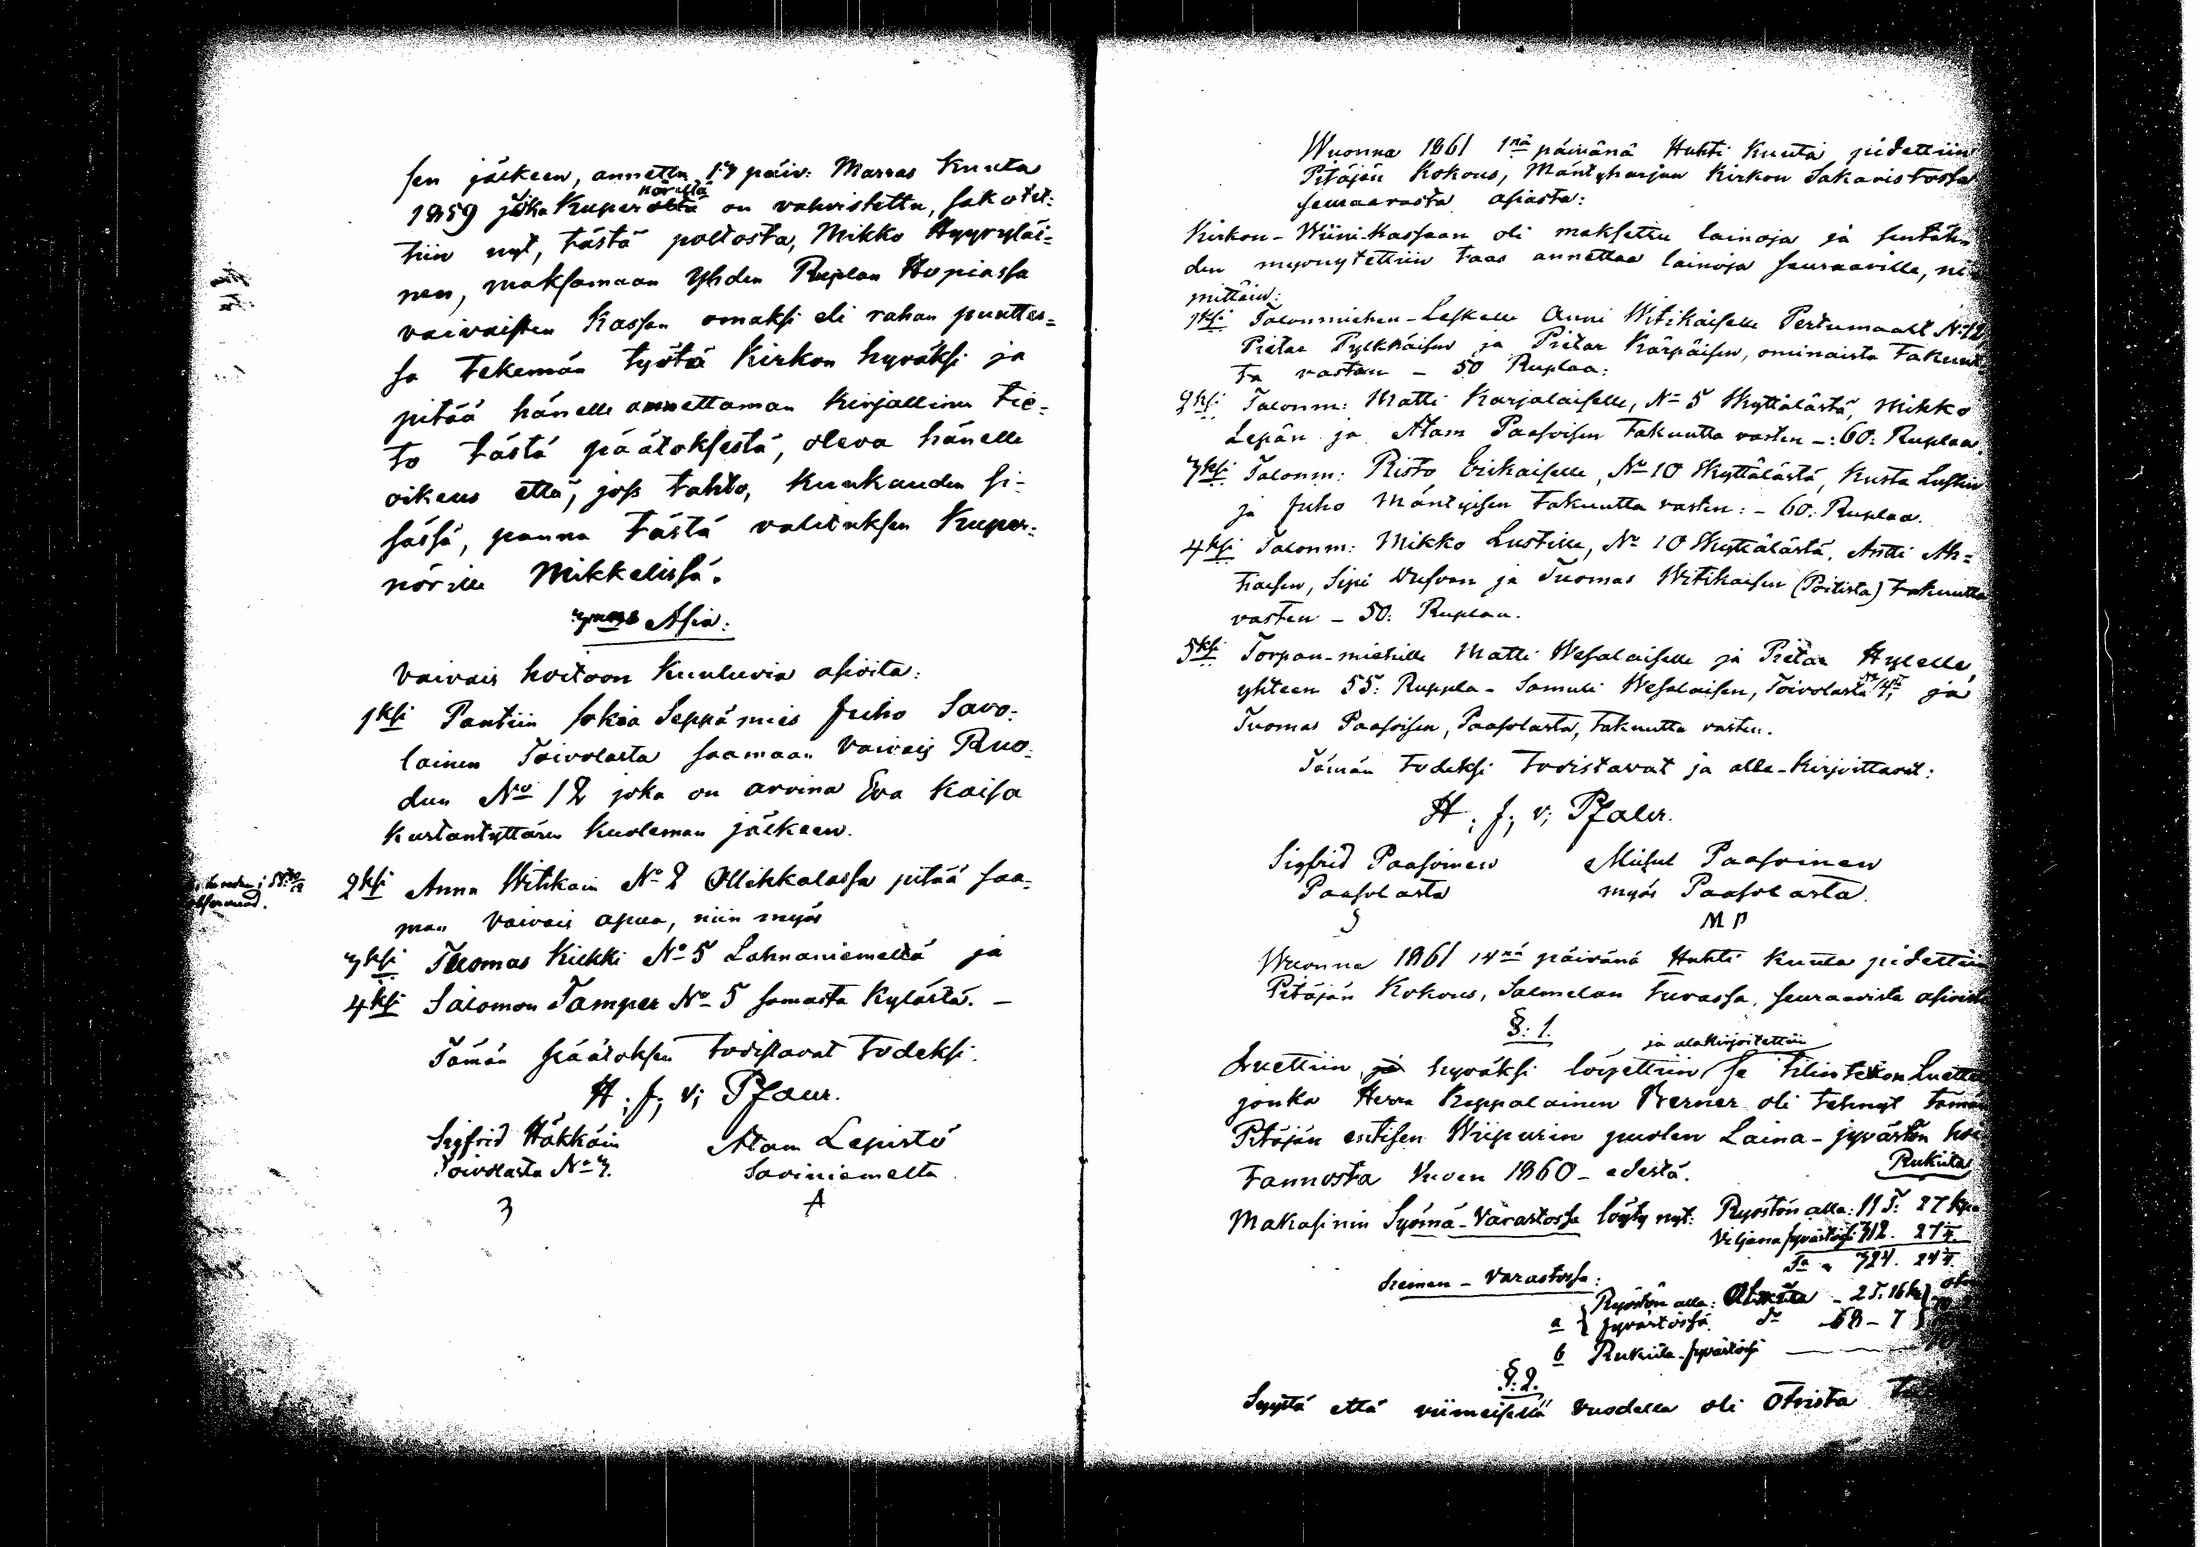 sen jälkeen, annettu 17 päiv: Marras kuuta
1859 joka Kupernöriltä on vahvistettu, sakotet:
tiin nyt, tästä poltosta, Mikko Hyyryläi=
nen, maksamaan Yhden Ruplan Hopiassa
vaivaisten Kassan omaksi eli rahan puuttes=
sa tekemän työtä Kirkon hyväksi ja
pitää hänelle annettaman Kirjallinen tie=
to tästä päätöksestä, oleva hänelle
oikeus että, jos tahto, kuukauden si=
sässä, panna tästä valituksen Kuper=
nörille Mikkelissä.
3mas Asia:
Vaivais hoitoon kuuluvia asioita:
1ksi Pantiin sokia Seppämies Juho Savo=
lainen Toivolasta saamaan Vaivais Ruo=
dun No 12 joka on avoina Eva Kaisa
Kustantyttären Kuoleman jälkeen.
2ksi Anna Witikain No 2 Ollikkalassa pitää saa=
man Vaivais apua, niin myös
3ksi Tuomas Kiekki No 5 Lahnaniemeltä ja
4ksi Salomon Tamper No 5 samasta Kylästä. –
Tämän päätöksen todistavat todeksi.
H; J; v; Pfaler.
Sigfrid Häkkäin Atam Lepistö
Toivolasta No 7. Saviniemeltä
3 A
Wuonna 1861 1nä päivänä Huhti kuuta pidettiin
Pitäjän Kokous, Mäntyharjun Kirkon Sakaristossa
seuraavasta asiasta:
Kirkon-Wiini-Kassaan oli maksettu lainoja ja sentäh=
den myönytettiin taas annettaa lainoja seuraaville, ni
mittäin:
1ksi Talonmiehen-Leskelle Anni Witikäiselle Pertumaalt No 12
Pietar Pylkkäisen ja Pietar Kärpäisen, ominaista takuut
ta vastan – 50 Ruplaa:
2ksi Talonm: Matti Karjalaiselle, No 5 Skyttälästä, Mikko
Lepän ja Atam Paasoisen takuutta vasten –: 60: Ruplaa.
3ksi Talonm: Risto Erikaiselle, No 10 Skyttälästä, Kusta Lustin
ja Juho Mäntyisen takuutta vasten: – 60: Ruplaa.
4ksi Talonm: Mikko Lustille, No 10 Skyttälästä, Antti Ah=
tiaisen, Sipi ja Tuomas Witikaisen (Poitista) takuutta
vasten – 50: Ruplaa.
5ksi Torpan-miehille Matti Wesalaiselle ja Pietar Hylelle,
yhteen 55: Ruppla – Samuli Wesalaisen, Toivolasta No 4, ja
Tuomas Paasoisen, Paasolasta, takuutta vasten.
Tämän todeksi todistavat ja alla-kirjoittavat:
H; J; v; Pfaler.
Sigfrid Paasoinen Mikel Paasoinen
Paasolasta myös Paasolasta.
S M P
Wuonna 1861 14nä päivänä Huhti kuuta pidettiin
Pitäjän Kokous, Salmelan tuvassa, seuraavista asioista
§: 1.
ja alakirjoitettiin
Luettiin ja hyväksi löyettiin se tilin tekon Luettelo
jonka Herra Kappalainen Berner oli tehnyt tämän
Pitäjän entisen Wiipurin puolen Laina-jyvästön hoi
tannosta Vuoen 1860 – edestä.
Rukiita
Makasinin Syömä-Varastossa löyty nyt: Ryöstön alla: 11 T: 27 kpa
Viljana jyvästösä 312. 27¼.
Sa 324. 24¼.
Siemen – Varastossa:
a Ryöstön alla: – 2 T. 16 k
Jyvästössä. – 68 – 7
b Rukiita jyvästösi
§: 2.
Syystä että viimeisellä vuodella oli Otrista